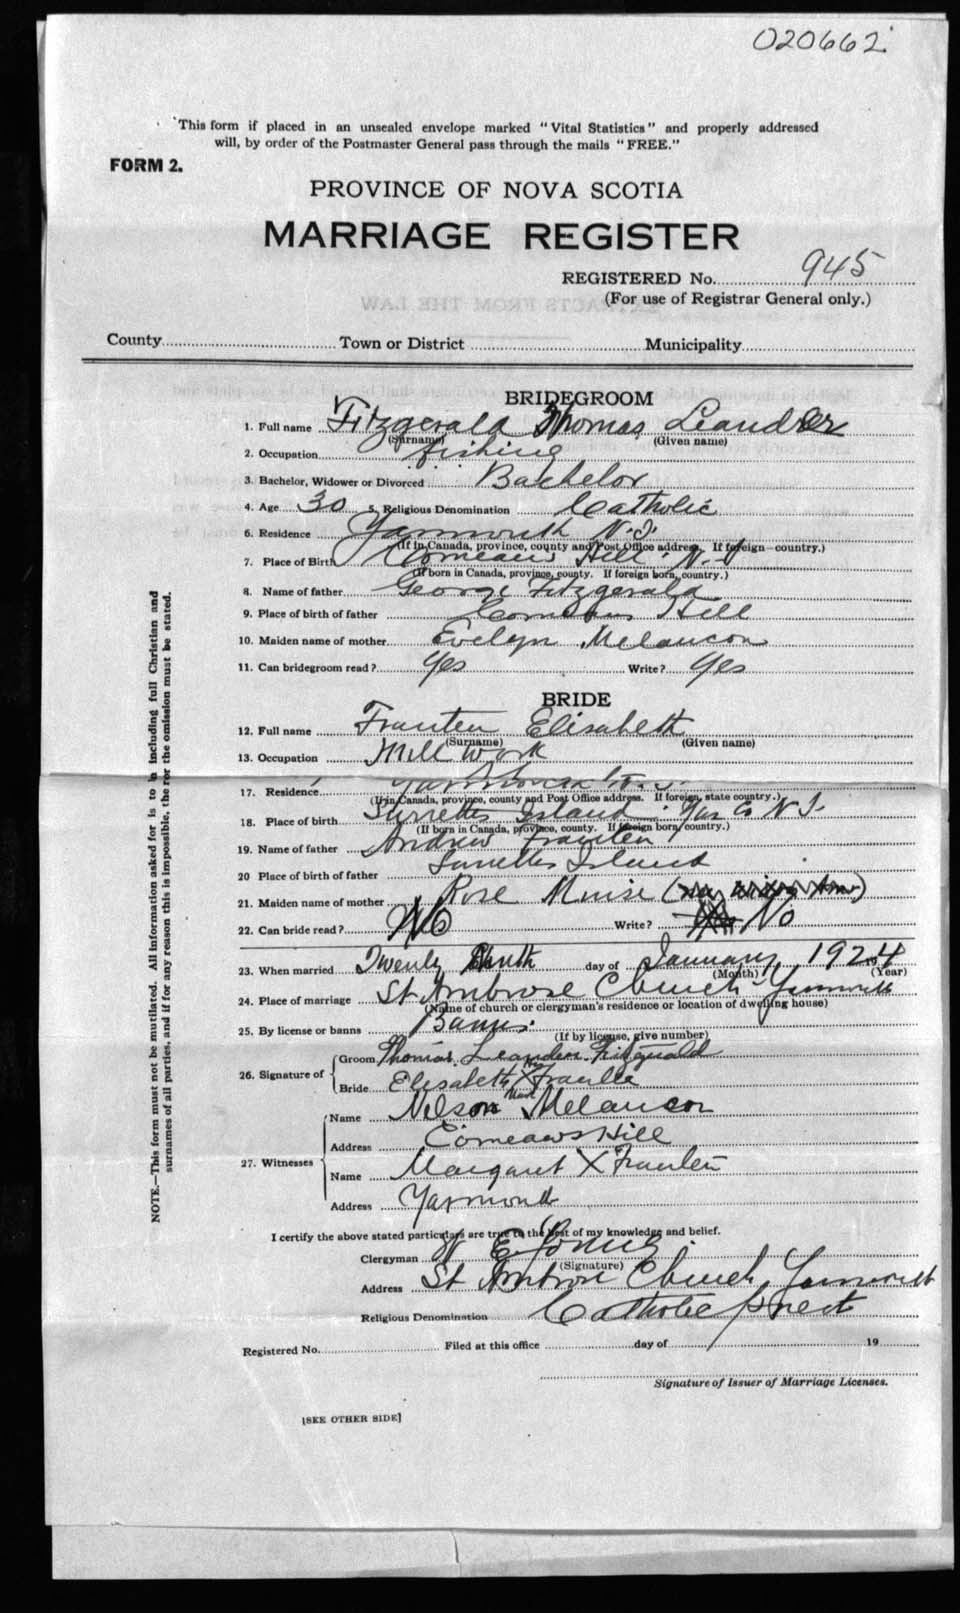 020662
"This form if placed in an unsealed envelope marked "Vital Statistics" and properly addressed
will, by order of the Postmaster General pass through the mails "FREE."
FORM 2.
PROVINCE OF NOVA SCOTIA
MARRIAGE REGISTER
REGISTERED No. 945
(For use of Registrar General only.)
County Town or District Municipality
BRIDEGROOM
1. Full name Fitzgerald Thomas Leander
(Surname) (Given name)
2. Occupation fishing
3. Bachelor, Widower or Divorced Bachelor
4. Age 30 5. Religious Denomination Catholic
6. Residence Yarmouth N.S.
(If in Canada, province, county and Post Office address. If foreign—country.)
7. Place of Birth Comeaus Hill N.S
(If born in Canada, province, county. If foreign born, country.)
8. Name of father George Fitzgerald
9. Place of birth of father Comeaus Hill
10. Maiden name of mother Evelyn Melancon
11. Can bridegroom read? Yes Write? Yes
BRIDE
12. Full name Elisabeth
(Surname) (Given name)
13. Occupation Mill work
17. Residence Yarmouth N.S.
(If in Canada, province, county and Post Office address. If foreign, state country.)
18. Place of birth Surrettes Island Yar Co N S.
(If born in Canada, province, county. If foreign born, country.)
19. Name of father Andrew
20 Place of birth of father Surrettes Island
21. Maiden name of mother Rose Muise
22. Can bride read? No Write? No
23. When married Twenty day of January 1924
(Month) (Year)
24. Place of marriage St Ambrose Church Yarmouth
(Name of church or clergyman's residence or location of dwelling house)
25. By license or banns Banns.
(If by license, give number)
26. Signature of Groom Thomas Leander Fitzgerald
Bride Elisabeth X
27. Witnesses Name Nelson Melancon
Address Comeaus Hill
Name Margaret X
Address Yarmouth
I certify the above stated particulars are true to the best of my knowledge and belief.
Clergyman W E
(Signature)
Address St Ambrose Church Yarmouth
Religious Denomination Catholic priest
Registered No. Filed at this office day of 19
Signature of Issuer of Marriage Licenses.
[SEE OTHER SIDE]
NOTE.—This form must not be mutilated. All information asked for is to including full Christian and
surnames of all parties, and if for any reason this is impossible, the for the omission must be stated.